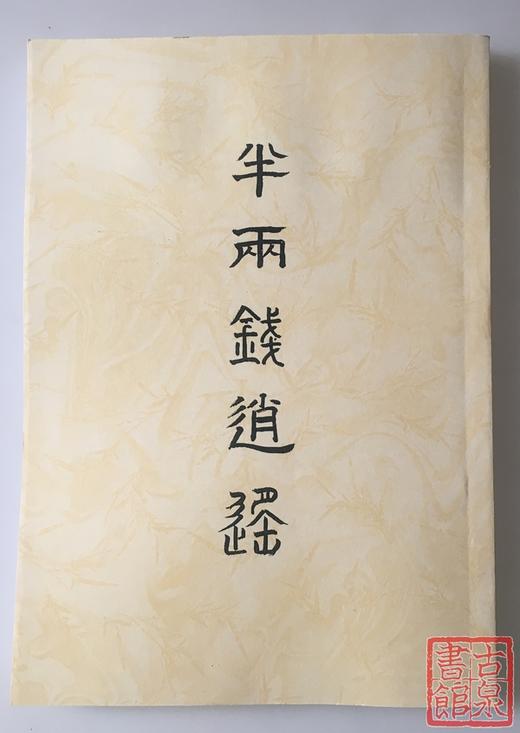 半兩錢逍遥
古泉
書館